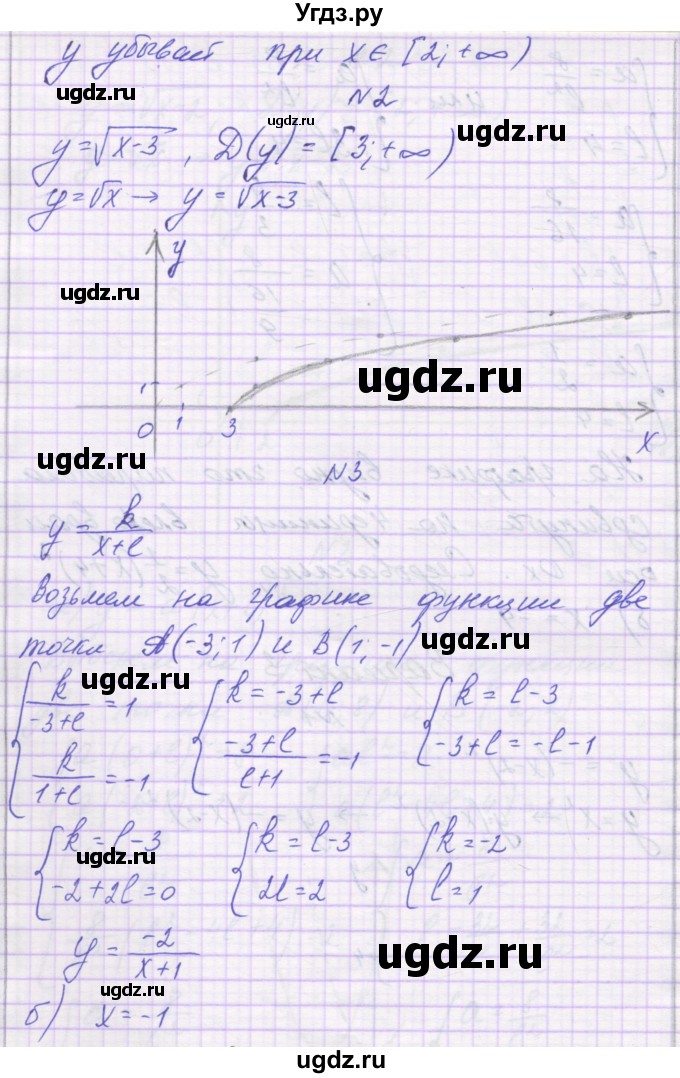 Угдз.ру
у убывает при x ∈ [2; +∞)
ugdz.ru
ugdz.ru
№2
ugdz.ru
y = √(x-3), D(y) = [3; +∞)
y = √x → y = √(x-3)
y
ugdz.ru
ugdz.ru
1
0 1 3 x
ugdz.ru
№3
y = k/(x+l)
Возьмем на графике функции две
точки A(-3; 1) и B(1; -1)
ugdz.ru
ugdz.ru
{ k/(-3+l) = 1 { k = -3+l { k = l-3
{ k/(1+l) = -1 { (-3+l)/(l+1) = -1 { -3+l = -l-1
{ k = l-3 { k = l-3 { k = -2
ugdz.ru
{ -2+2l = 0 { 2l = 2 { l = 1
y = -2/(x+1)
ugdz.ru
ugdz.ru
б) x = -1
ugdz.ru